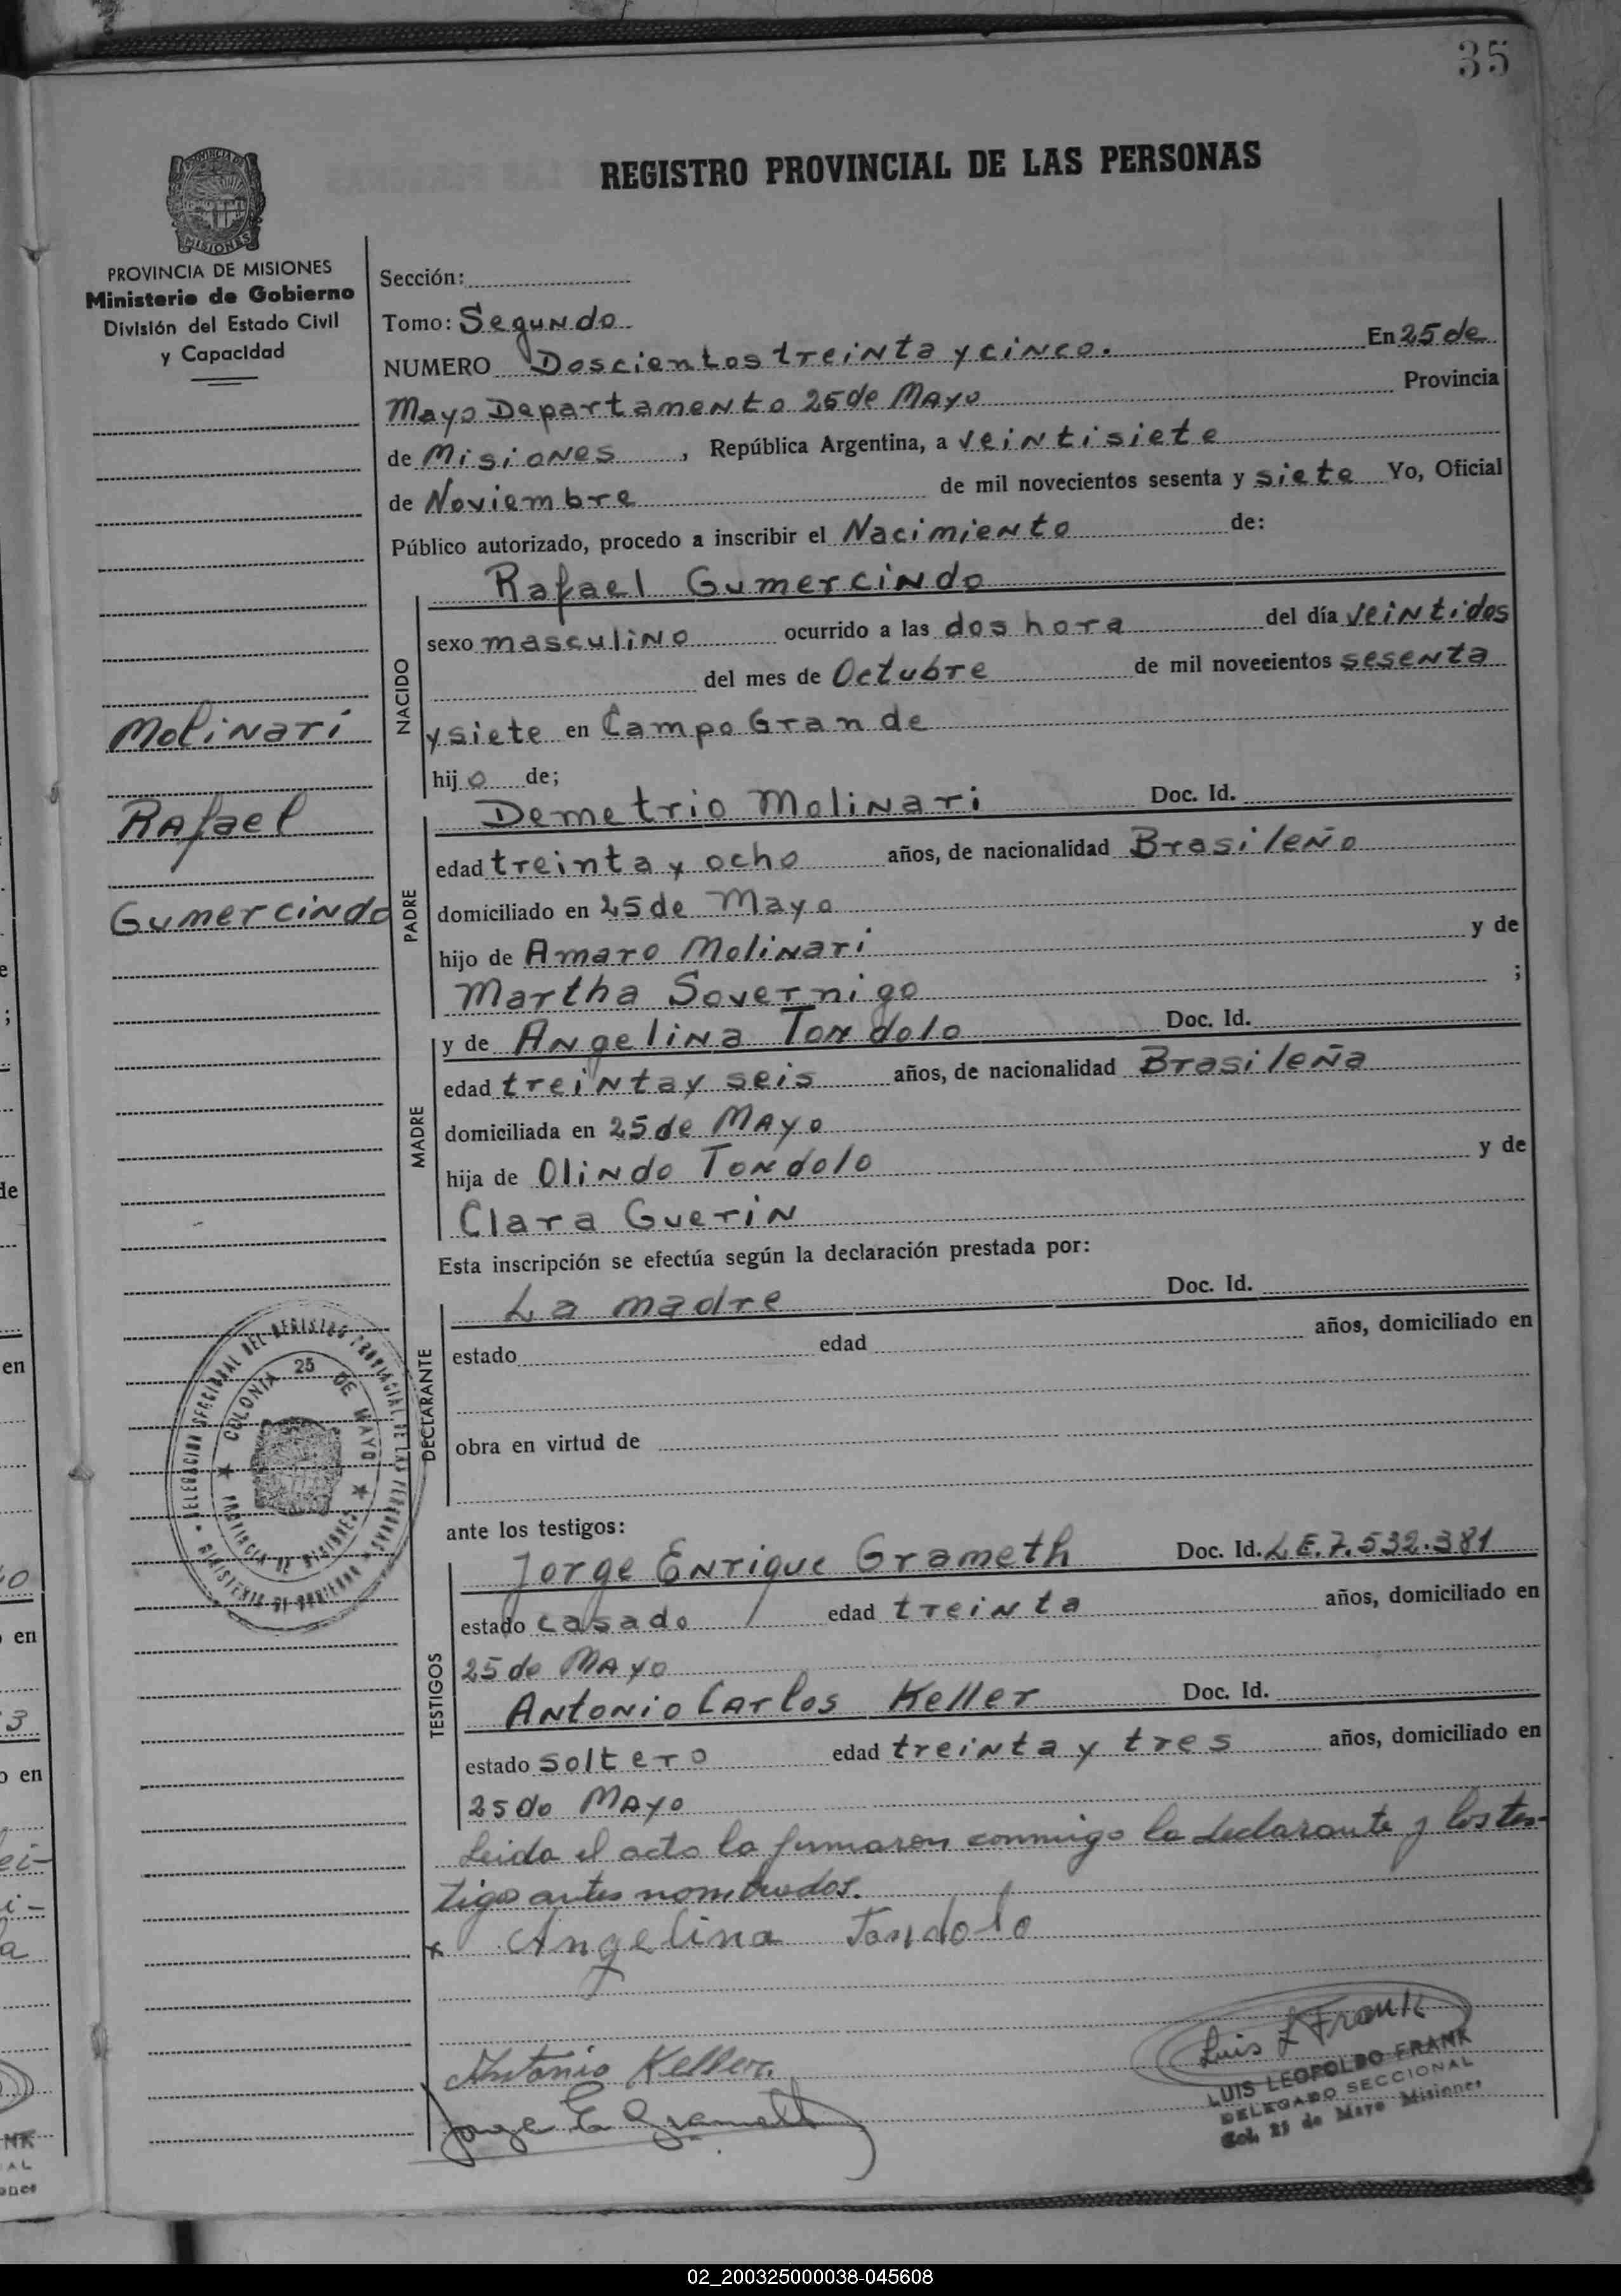 35
REGISTRO PROVINCIAL DE LAS PERSONAS
PROVINCIA DE MISIONES
Ministerio de Gobierno
División del Estado Civil
y Capacidad
Molinari
Rafael
Gumercindo
Sección:
Tomo: Segundo
NUMERO Doscientos treinta y cinco. En 25 de
Mayo Departamento 25 de Mayo Provincia
de Misiones, República Argentina, a veintisiete
de Noviembre de mil novecientos sesenta y siete Yo, Oficial
Público autorizado, procedo a inscribir el Nacimiento de:
NACIDO
Rafael Gumercindo
sexo masculino ocurrido a las dos hora del día veintidos
del mes de Octubre de mil novecientos sesenta
y siete en Campo Grande
hijo de;
PADRE
Demetrio Molinari Doc. Id.
edad treinta y ocho años, de nacionalidad Brasileño
domiciliado en 25 de Mayo
hijo de Amaro Molinari y de
Martha Sovernigo ;
MADRE
y de Angelina Tondolo Doc. Id.
edad treinta y seis años, de nacionalidad Brasileña
domiciliada en 25 de Mayo
hija de Olindo Tondolo y de
Clara Guerin
Esta inscripción se efectúa según la declaración prestada por:
DECLARANTE
La madre Doc. Id.
estado edad años, domiciliado en
obra en virtud de
ante los testigos:
TESTIGOS
Jorge Enrique Grameth Doc. Id. L.E. 7.532.381
estado casado edad treinta años, domiciliado en
25 de Mayo
Antonio Carlos Keller Doc. Id.
estado soltero edad treinta y tres años, domiciliado en
25 de Mayo
Leida el acta la firmaron conmigo la declarante y los tes-
tigos antes nombrados.
x Angelina Tondolo
Antonio Keller
Jorge E Grameth
Luis L Frank
LUIS LEOPOLDO FRANK
DELEGADO SECCIONAL
Col. 25 de Mayo Misiones
DELEGACION SECCIONAL DEL REGISTRO PROVINCIAL DE LAS PERSONAS
MINISTERIO DE GOBIERNO
COLONIA 25 DE MAYO
PROVINCIA DE MISIONES
02_200325000038-045608